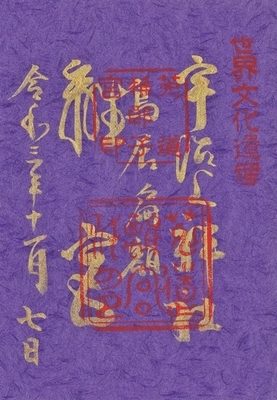 世界文化遺産
宇治上神社
鳥居扁額
離宮
令和三年十一月七日